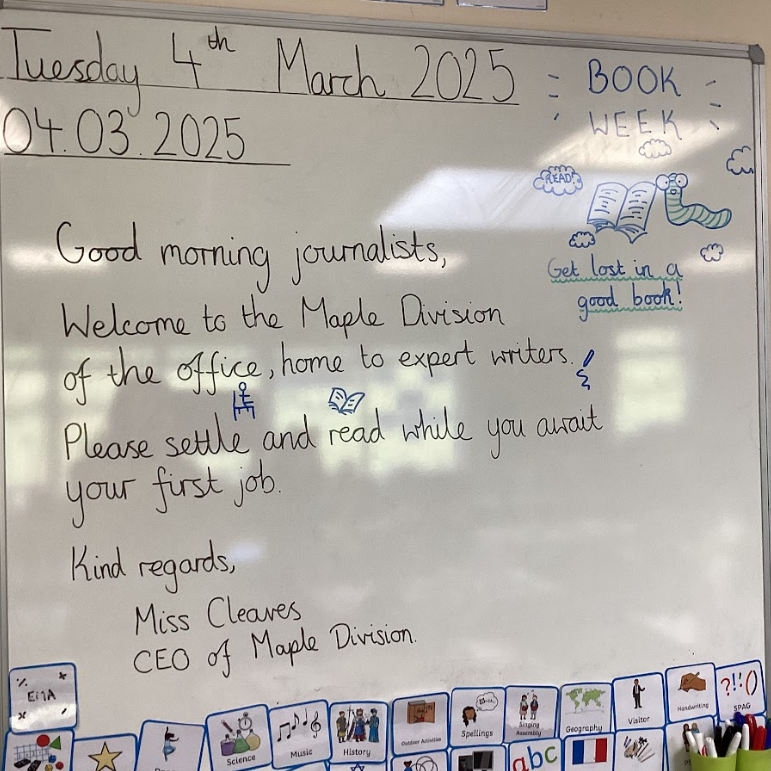 Tuesday 4th March 2025
04.03.2025
BOOK
WEEK
READ!
Get lost in a
good book!
Good morning journalists,
Welcome to the Maple Division
of the office, home to expert writers.
Please settle and read while you await
your first job.
Kind regards,
Miss Cleaves
CEO of Maple Division.
EMA
Science
Music
History
Outdoor Activities
Spellings
Singing
Assembly
Geography
Visitor
Handwriting
?!!()
SPAG
abc